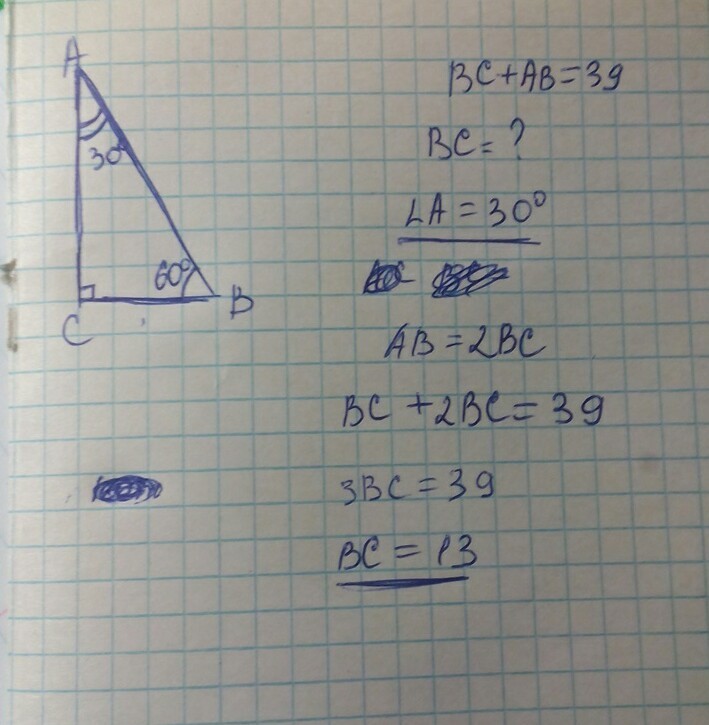 A
30°
60°
B
C
BC+AB=39
BC=?
∠A=30°
AB=2BC
BC+2BC=39
3BC=39
BC=13